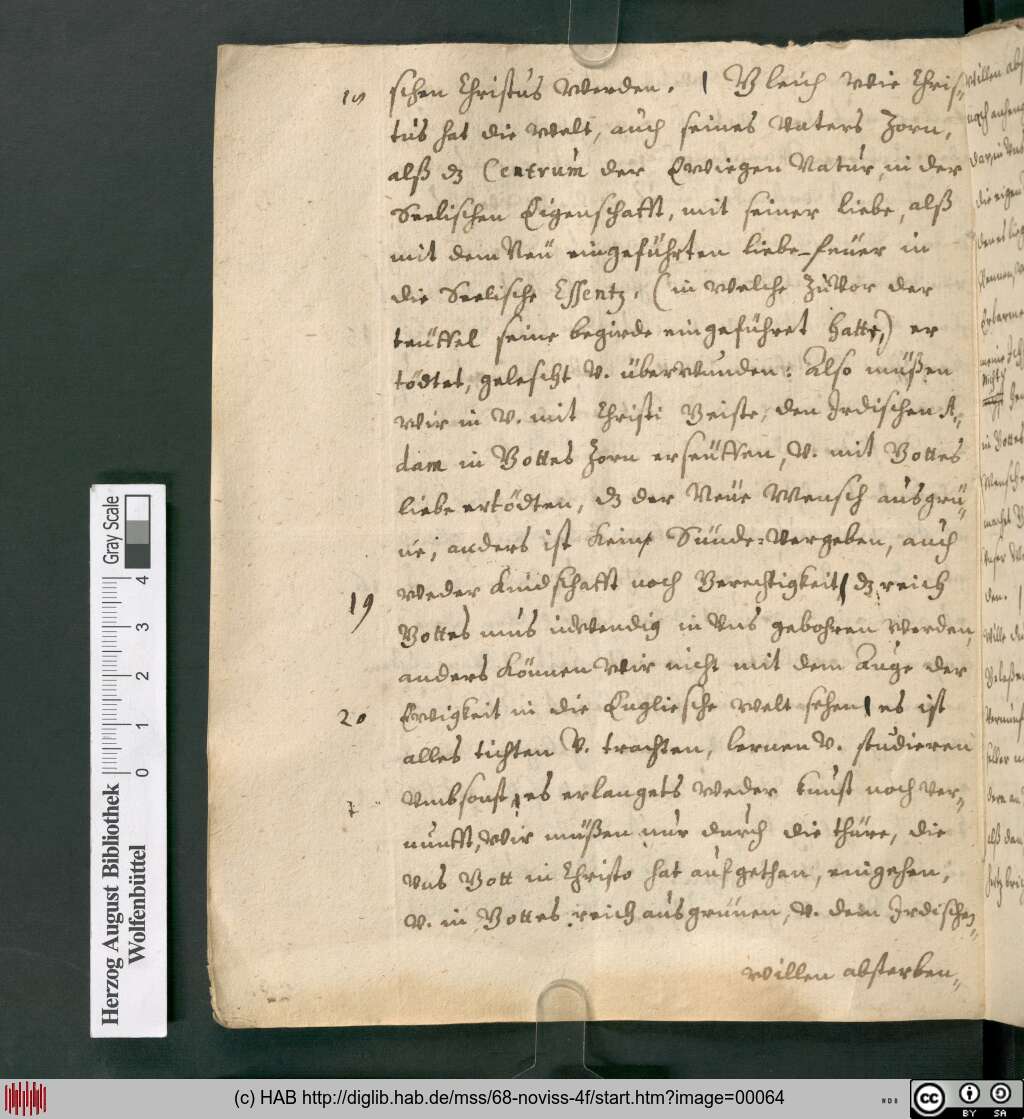 18 schen Christus werden. | Gleich wie Chris-
tus hat die welt, auch seines Vaters Zorn,
alß dz Centrum der Ewigen Natur, in der
Seelischen Eigenschafft, mit seiner liebe, alß
mit dem Neü eingeführten liebe-feüer in
die Seelische Essentz, (in welche Zuvor der
teüffel seine begirde eingeführet hatte,) er
tödtet, gelescht v. überwunden: Also müßen
wir in v. mit Christi Geiste, den Irdischen A-
dam in Gottes Zorn erseüffen, v. mit Gottes
liebe ertödten, dz der Neüe Mensch ausgrü-
ne; anders ist keine Sünde-Vergeben, auch
weder kindschafft noch Gerechtigkeit | dz reich
19 Gottes mus inwendig in Vns gebohren werden,
anders können wir nicht mit dem Auge der
20 Ewigkeit in die Engliesche welt sehen | es ist
alles tichten v. trachten, lernen v. studieren
Vmbsonst, es erlangets weder kunst noch ver-
nunfft, wir müßen nur durch die thüre, die
vns Gott in Christo hat aufgethan, eingehen,
v. in Gottes reich ausgrünen, v. dem Irdischen
willen absterben,
Herzog August Bibliothek
Wolfenbüttel
0 1 2 3 4
Gray Scale
(c) HAB http://diglib.hab.de/mss/68-noviss-4f/start.htm?image=00064
cc BY SA